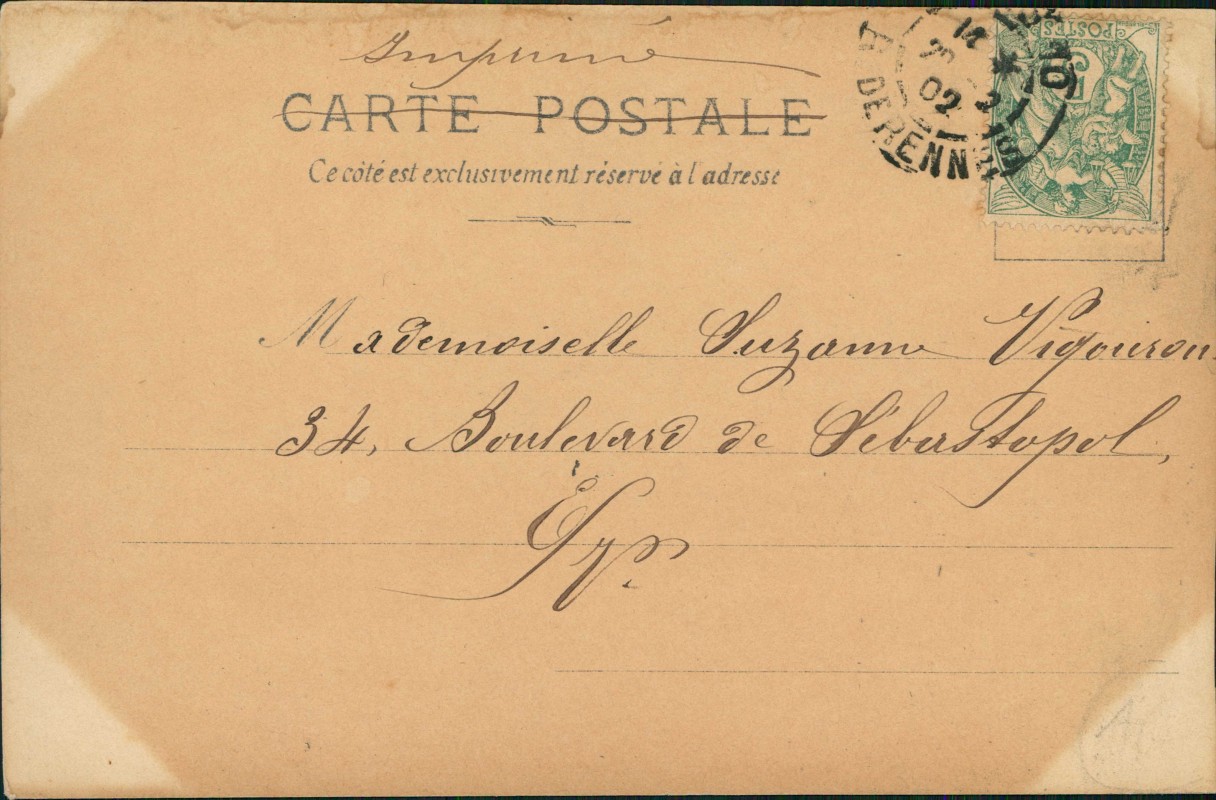 Imprimé
CARTE POSTALE
Ce côté est exclusivement réservé à l'adresse
POSTES
02
DE RENNES
Mademoiselle Suzanne Vigourou
34, Boulevard de Sébastopol,